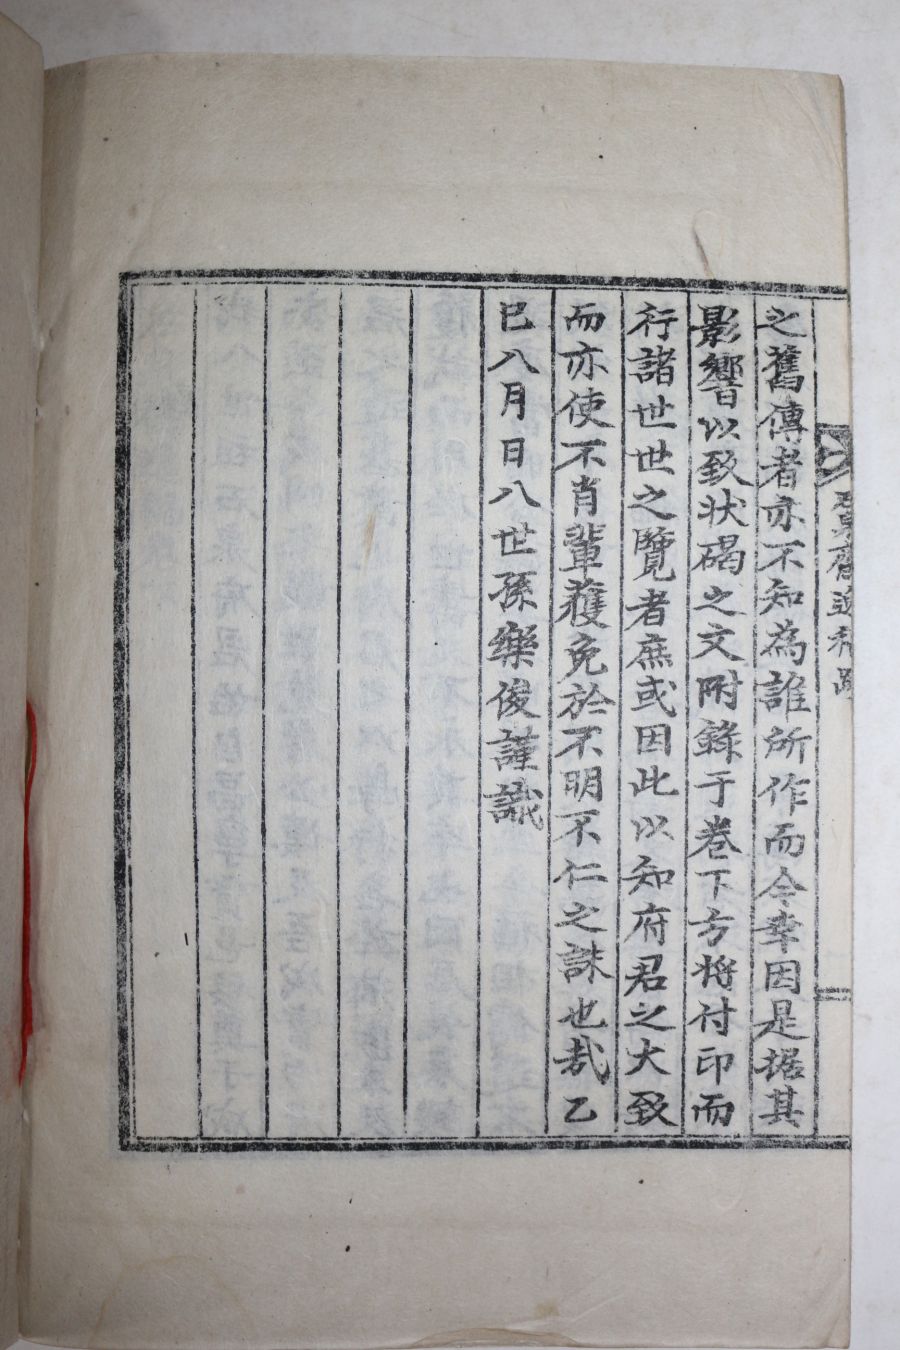 之舊傳者亦不知為誰所作而今幸因是据其
影響以致状碣之文附錄于卷下方将付印而
行諸世世之覽者庶或因此以知府君之大致
而亦使不肖輩獲免於不明不仁之誅也哉乙
巳八月日八世孫樂俊謹識